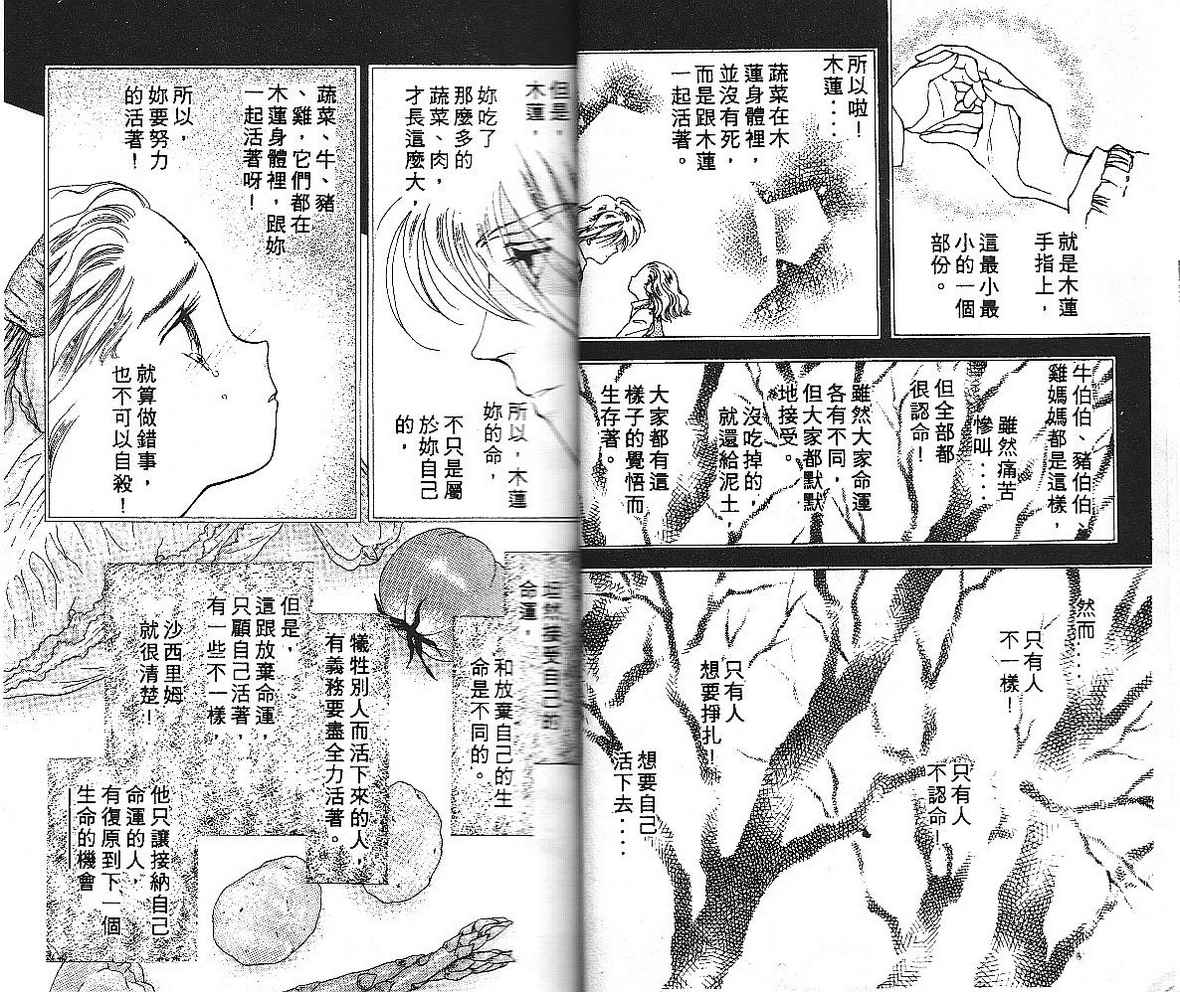 就是木蓮
手指上，
這最小最
小的一個
部份。
所以啦！
木蓮····
蔬菜在木
蓮身體裡，
並沒有死，
而是跟木蓮
一起活著。
牛伯伯、豬伯伯、
雞媽媽都是這樣，
雖然痛苦
慘叫····
但全部都
很認命！
雖然大家命運
各有不同，
但大家都默默
地接受。
沒吃掉的，
就還給泥土，
大家都有這
樣子的覺悟而
生存著。
然而····
只有人
不一樣！
只有人
不認命！
只有人
想要掙扎！
想要自己
活下去····
但是，
木蓮，
妳吃了
那麼多的
蔬菜、肉，
才長這麼大，
所以，木蓮
妳的命，
不只是屬
於妳自己
的，
蔬菜、牛、豬
、雞，它們都在
木蓮身體裡，跟妳
一起活著呀！
所以，
妳要努力
的活著！
就算做錯事，
也不可以自殺！
坦然接受自己的
命運，
和放棄自己的生
命是不同的。
犧牲別人而活下來的人，
有義務要盡全力活著。
但是，
這跟放棄命運，
只顧自己活著，
有一些不一樣，
沙西里姆
就很清楚！
他只讓接納自己
命運的人，
有復原到下一個
生命的機會